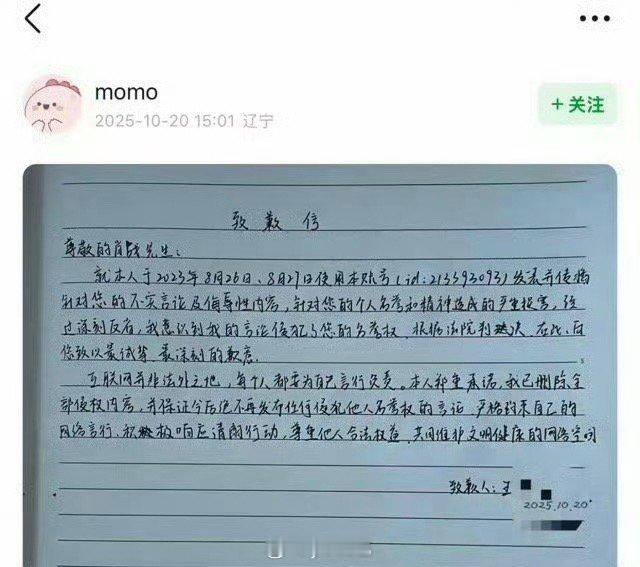 momo
2025-10-20 15:01 辽宁
+关注
致歉信
尊敬的肖战先生:
就本人于2023年8月26日、8月27日使用本账号(id:213393093)发表并传播
针对您的不实言论及侮辱性内容,针对您的个人名誉和精神造成的严重损害,经
过深刻反省,我意识到我的言论侵犯了您的名誉权,根据法院判决,在此,向
您致以最诚挚、最深刻的歉意.
互联网并非法外之地,每个人都要为自己言行负责。本人郑重承诺,我已删除全
部侵权内容,并保证今后绝不再发布任何侵犯他人名誉权的言论,严格约束自己的
网络言行,积极响应清朗行动,尊重他人合法权益,共同维护文明健康的网络空间
致歉人:王
2025.10.20